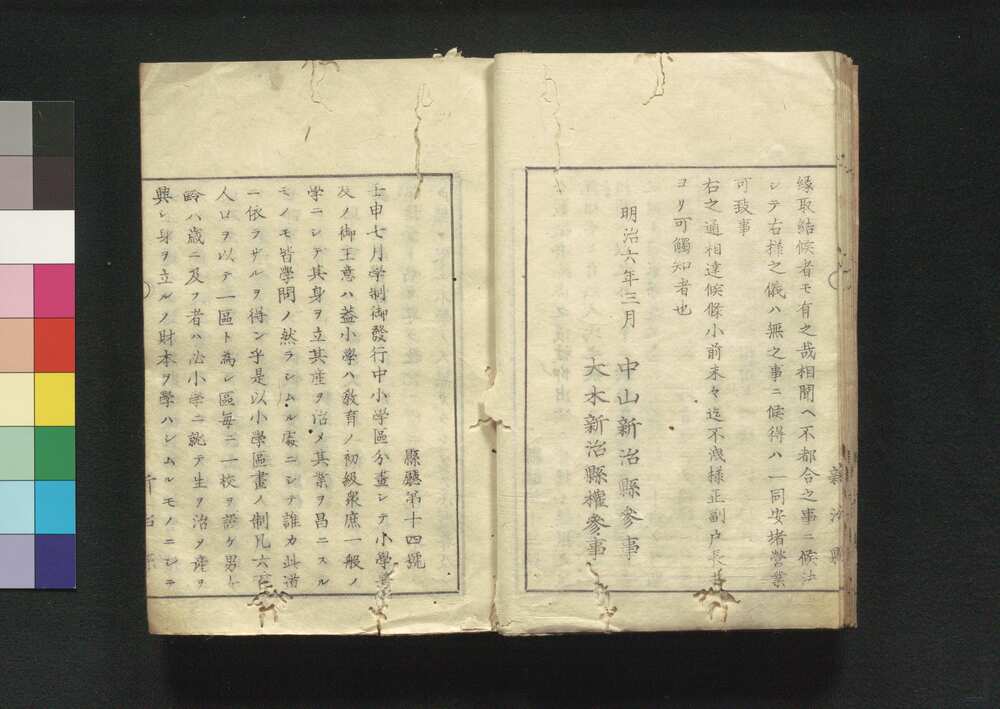 縁取結候者モ有之哉相聞ヘ不都合之事ニ候法
シテ右様之儀ハ無之事ニ候得ハ一同安堵營業
可致事
右之通相達候條小前末々迄不洩様正副户長
ヨリ可觸知者也
明治六年三月
中山新治縣參事
大木新治縣權參事
縣廳第十四號
壬申七月学制御發行中小学區分畫シテ小學普
及ノ御主意ハ蓋小学ハ敎育ノ初級衆庶一般ノ
学ニシテ其身ヲ立其産ヲ治メ其業ヲ昌ニスル
モノモ皆學問ノ然ラシムル處ニシテ誰カ此道
ニ依ラサルヲ得ン乎是以小學區畫ノ制凡六百
人口ヲ以テ一區ト為シ區毎ニ一校ヲ設ケ男女
齢八歳ニ及フ者ハ必小学ニ就テ生ヲ治メ産ヲ
興シ身ヲ立ルノ財本ヲ學ハシムルモノニシテ
新治縣